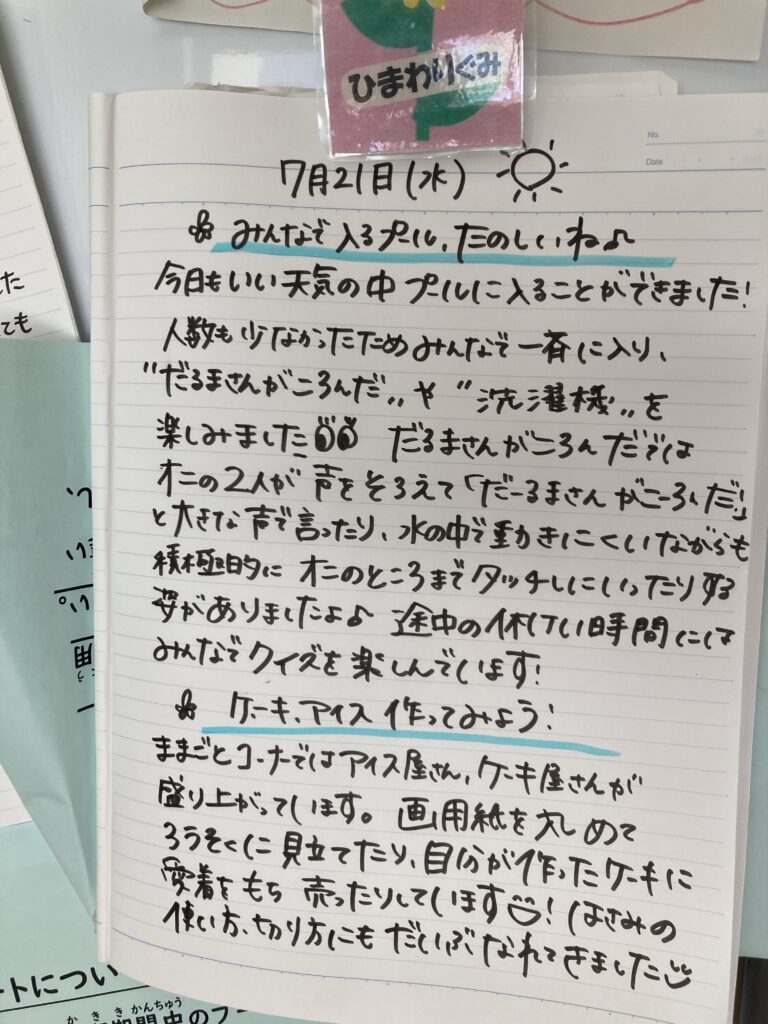 ひまわりぐみ
No.
Date
7月21日(水)
みんなで入るプール、たのしいね♪
今日もいい天気の中プールに入ることができました!
人数も少なかったためみんなで一斉に入り、
"だるまさんがころんだ〃や"洗濯機〃を
楽しみました!! だるまさんがころんだでは
オニの2人が声をそろえて「だーるまさんがこーろんだ!」
と大きな声で言ったり、水の中で動きにくいながらも
積極的にオニのところまでタッチしにいったりする
姿がありましたよ♪ 途中の休けい時間には
みんなでクイズを楽しんでいます!
ケーキ、アイス作ってみよう!
ままごとコーナーではアイス屋さん、ケーキ屋さんが
盛り上がっています。画用紙を丸めて
ろうそくに見立てたり、自分が作ったケーキに
愛着をもち売ったりしています!はさみの
使い方、切り方にもだいぶなれてきました
た
ても
い。
用
ートについ
かききかんちゅう
期間中のプー